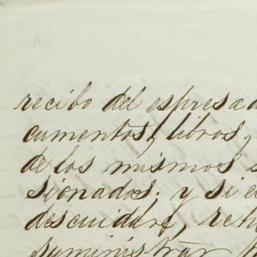 recibo del espresad
cumentos, libros,
de los mismos s
sionados; y si e
descuidare, rehu
suministrar